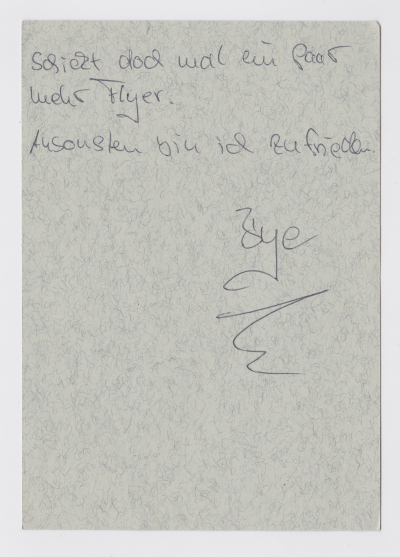 Schickt doch mal ein paar
mehr Flyer.
Ansonsten bin ich zufrieden.
Bye